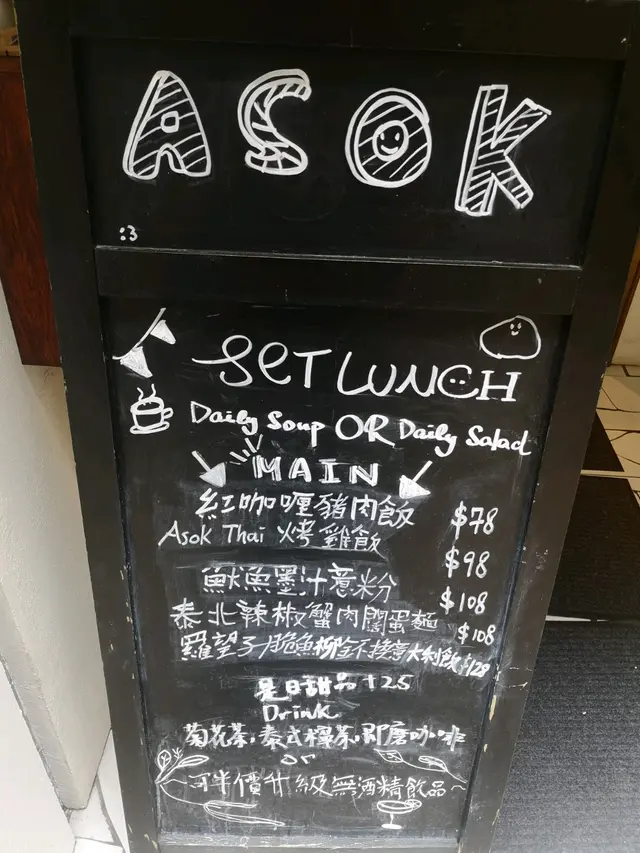 ASOK
:3
SET LUNCH
Daily Soup OR Daily Salad
MAIN
紅咖喱豬肉飯 $78
Asok Thai 烤雞飯 $98
魷魚墨汁薏粉 $108
泰北辣椒蟹肉闊蛋麵 $108
羅望子脆魚柳 意大利飯 $128
是日甜品 +25
Drink
菊花茶, 泰式檸茶, 即磨咖啡
or
可半價升級無酒精飲品~